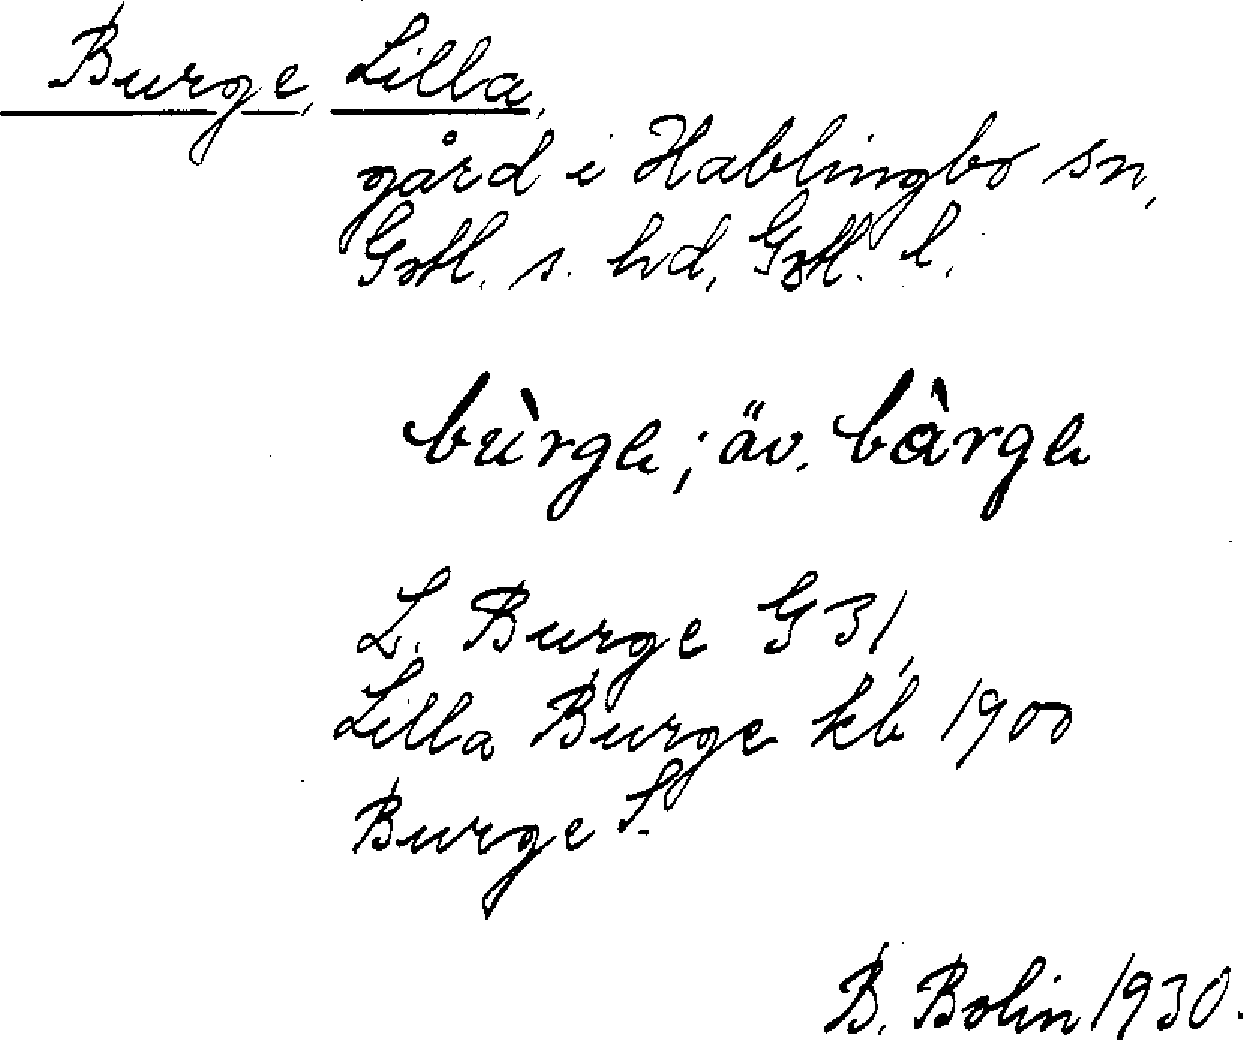 Burge, Lilla,
gård i Hablingbo sn,
Gotl. s. hd, Gotl. l.
bùrgh; äv. bàrgh
L. Burge G 31,
Lilla Burge kb 1900
Burge S.
B. Bolin 1930.